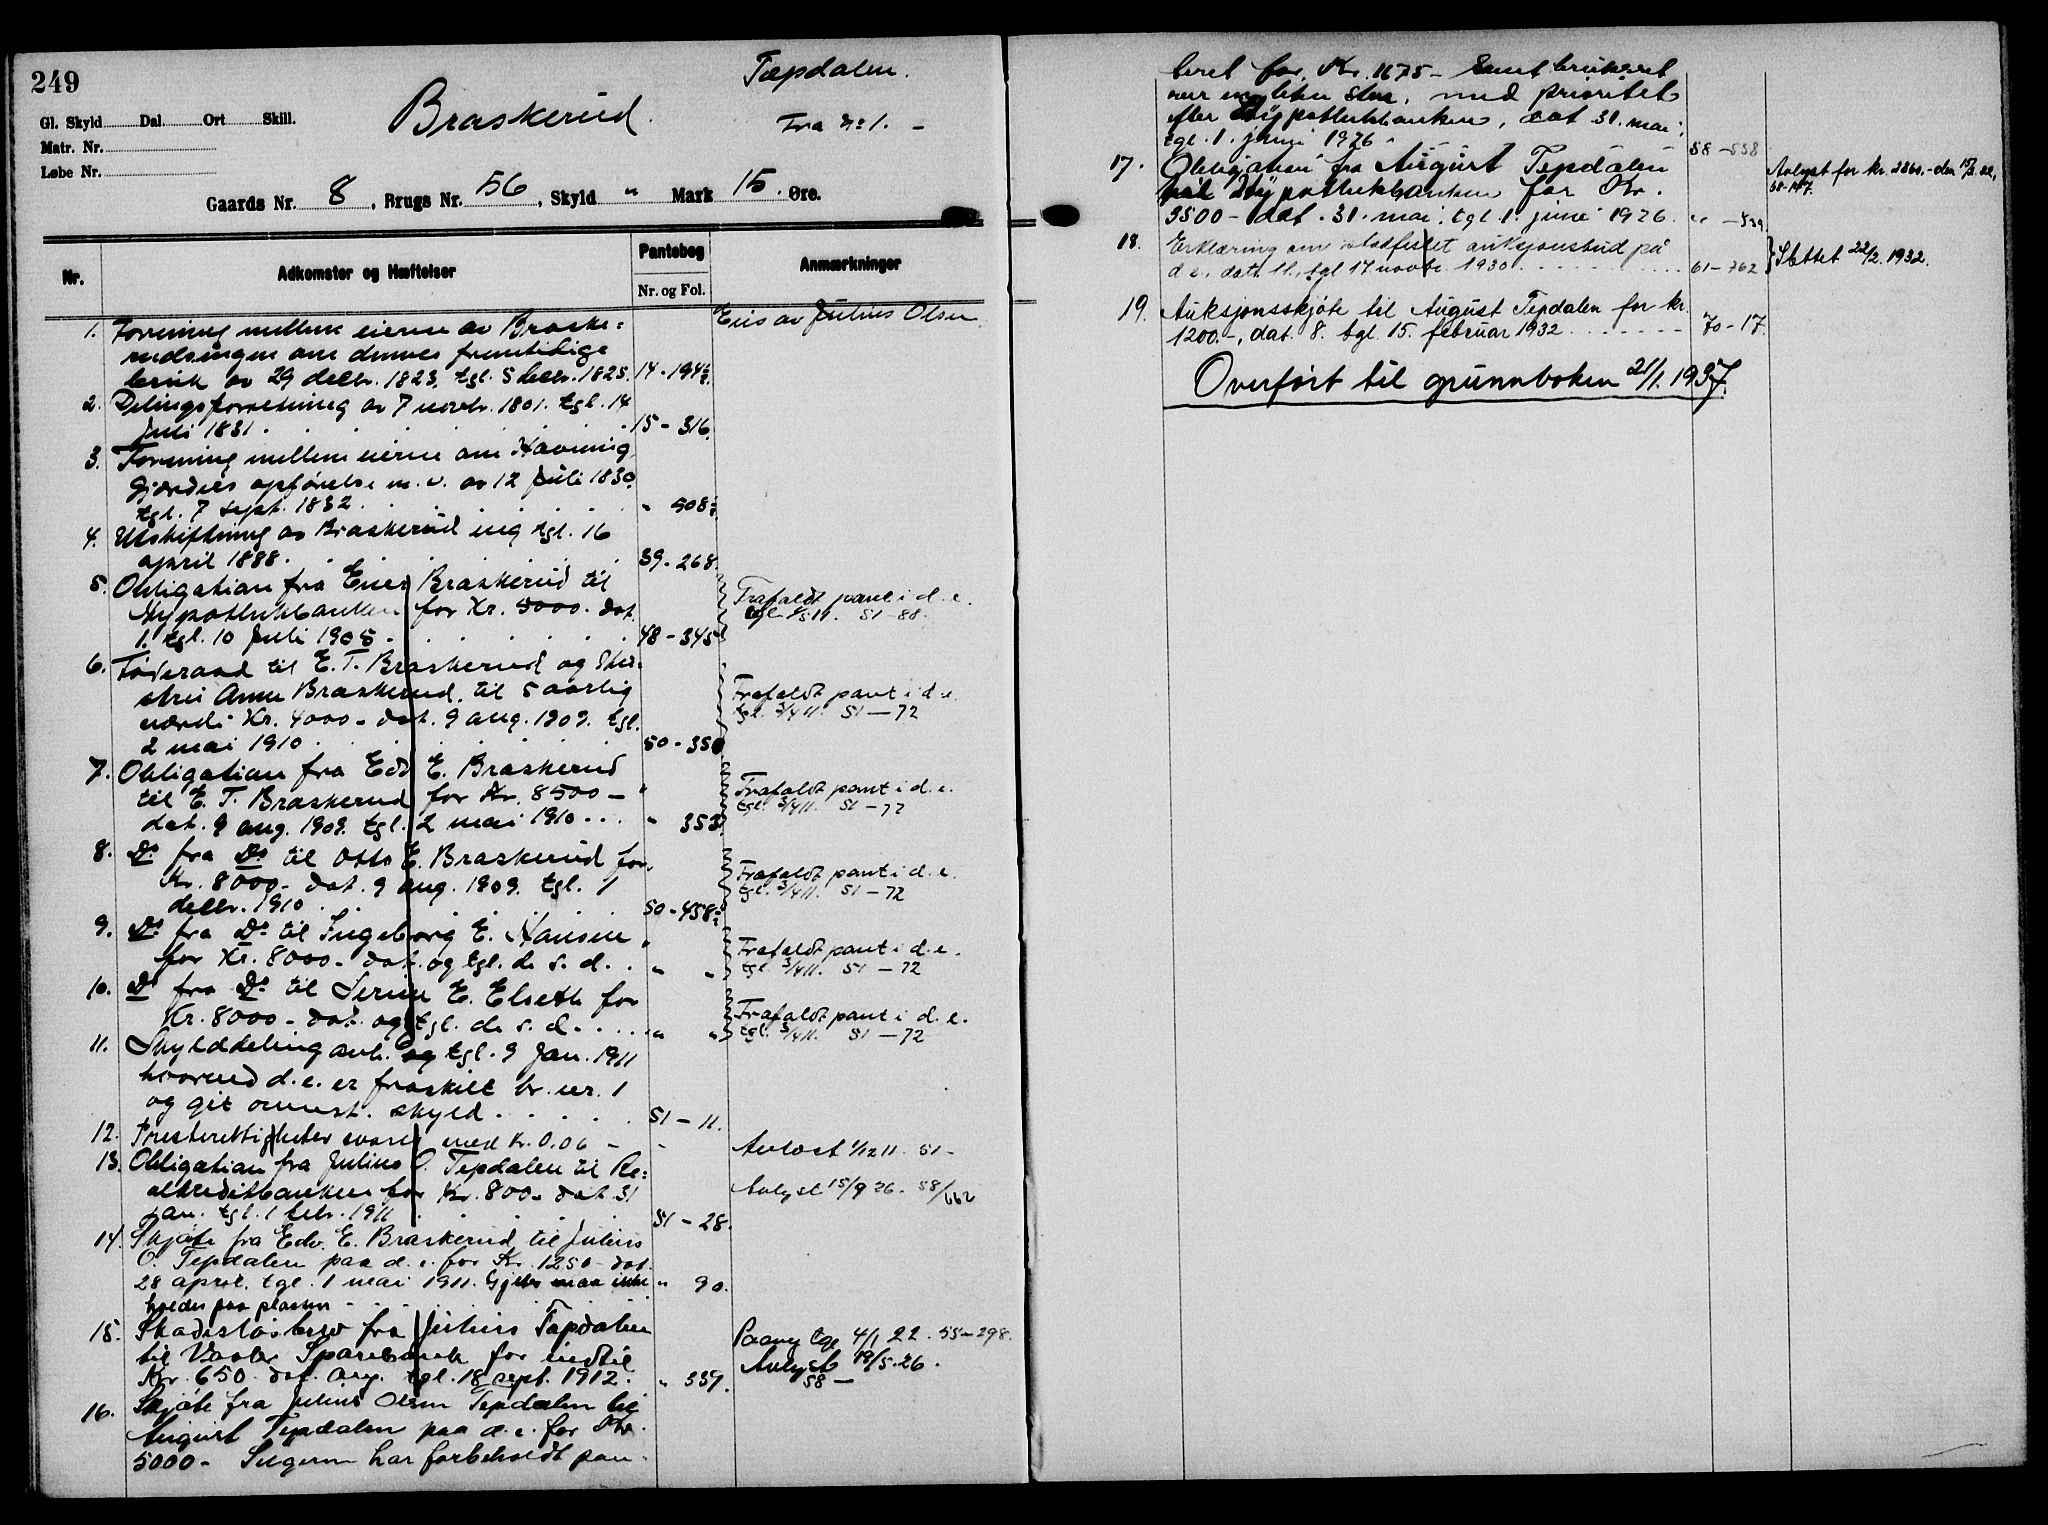 249
Gl. Skyld Dal. Ort Skill.
Matr. Nr.
Løbe Nr.
Braskerud.
Tæpdalen.
Fra № 1. -
Gaards Nr. 8, Brugs Nr. 56, Skyld " Mark 15 Øre.
Nr. Adkomster og Hæftelser Pantebog Nr. og Fol. Anmærkninger
Eies av Julius Olsen
1. Forening mellem eierne av Braske=
rudsingen om dennes fremtidige
bruk av 29 decbr. 1823, tgl. 5 decbr. 1825. 14-194
2. Delingsforretning av 7 novbr. 1801. tgl. 14
Juli 1831. 15-316.
3. Forening mellem eierne om Havning
gjærders opførelse m. v. av 12 Juli 1830.
tgl. 7 sept. 1832. " 508
4. Utskiftning av Braskerud eng tgl. 16
april 1888. 39-268.
5. Obligation fra Einer Braskerud til
Hypothekbanken for Kr. 5000- dat.
1. tgl. 10 Juli 1905 - 48-345
Frafaldt pant i d. e.
51-88.
6. Føderaad til E. T. Braskerud og
Anne Braskerud, til 5 aarlig
værdi Kr. 4000- dat. 9 aug. 1909. tgl.
2 mai 1910. 50-350
Frafaldt pant i d. e.
tgl. 3/4 11. 51-72
7. Obligation fra Edv E. Braskerud
til E. T. Braskerud for Kr. 8500-
dat. 9 aug. 1909. tgl. 2 mai 1910... " 353
Frafaldt pant i d. e.
tgl. 3/4 11. 51-72
8. Do fra Do til Otto E. Braskerud for
Kr. 8000- dat. 9 aug. 1909. tgl. 1
decbr. 1910 50-458
Frafaldt pant i d. e.
tgl. 3/4 11. 51-72
9. Do fra Do til Ingeborg E. Hansen
for Kr. 8000- dat. og tgl. d. s. d. . " "
Frafaldt pant i d. e.
tgl. 3/4 11. 51-72
10. Do fra Do til Serine E. Elseth for
Kr. 8000- dat. og tgl. d. s. d. . . . " "
Frafaldt pant i d. e.
tgl. 3/4 11. 51-72
11. Skylddeling avh. og tgl. 9 Jan. 1911
hvorved d. e. er fraskilt br. nr. 1
og git ovennt. skyld. 51-11.
12. Presterettigheter svares med Kr. 0.06 - -
Avløst 1/12 11. 51-
13. Obligation fra Julius O. Tepdalen til Re=
alkreditbanken for Kr. 800- dat. 31
jan. tgl. 1 febr. 1911 51-28.
Avlyst 15/9 26. 58/662
14. Skjøte fra Edv. E. Braskerud til Julius
O. Tepdalen paa d. e. for Kr. 1250- dat.
28 april. tgl. 1 mai 1911. Gjeter maa ikke " 90.
holdes paa pladsen -
15. Skadesløsbrev fra Julius Tæpdalen
til Vaaler Sparebank for indtil
Kr. 650- dat. aug. tgl. 18 sept. 1912. " 339.
Paany tgl 4/1 22. 55-298.
Avlyst 19/5. 26.
58 -
16. Skjøte fra Julius Olsen Tepdalen til
August Tepdalen paa d. e. for Kr.
5000- Selgeren har forbeholdt pan-
teret for Kr. 1675- samt bruksret
med prioritet
efter Hypothekbanken, dat 31. mai,
tgl. 1. juni 1926 - 58-538
17. Obligation fra August Tepdalen
til Hypothekbanken for Kr.
3500- dat. 31. mai, tgl. 1. juni 1926. " -539
Avlyst for kr. 2860.- den 15/2. 32,
68-147.
18. Erklæring om stadfestet auksjonsbud på
d. e., dat. 11., tgl 17 novbr. 1930. . . . . . . 61-762
Slettet 22/2. 1932.
19. Auksjonsskjøte til August Tepdalen for kr.
1200.-, dat. 8. tgl. 15. februar 1932 . . . . . . 70-17.
Overført til grunnboken 21/1. 1937.